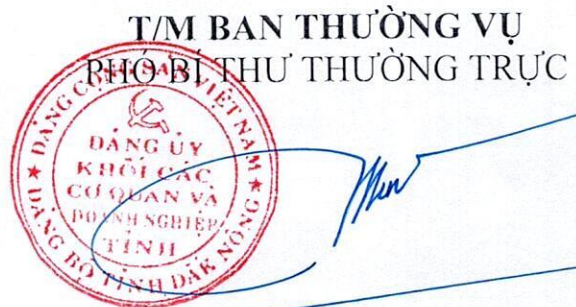 T/M BAN THƯỜNG VỤ
PHÓ BÍ THƯ THƯỜNG TRỰC
ĐẢNG CỘNG SẢN VIỆT NAM
ĐẢNG ỦY
KHỐI CÁC
CƠ QUAN VÀ
DOANH NGHIỆP
TỈNH
★ ĐẢNG BỘ TỈNH ĐẮK NÔNG ★